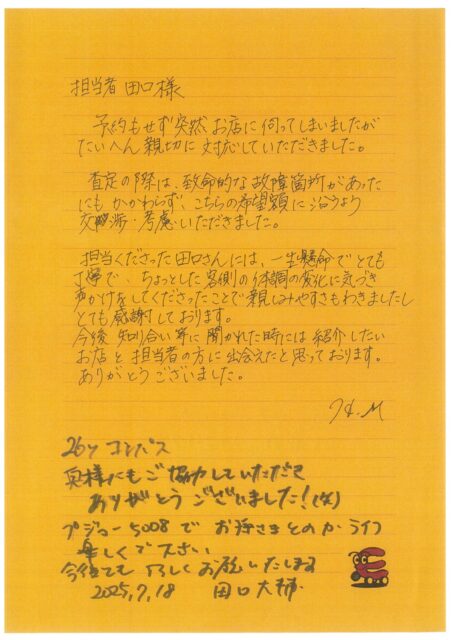 担当者 田口様
予約もせず突然お店に伺ってしまいましたが
たいへん親切に対応していただきました。
査定の際は、致命的な故障箇所があった
にもかかわらず、こちらの希望額に沿うよう
交渉・考慮いただきました。
担当くださった田口さんには、一生懸命でとても
丁寧で、ちょっとした客側の体調の変化に気づき
声かけをしてくださったことで親しみやすさもわきましたし
とても感謝しております。
今後 知り合い等に聞かれた時には紹介したい
お店と担当者の方に出会えたと思っております。
ありがとうございました。
H. M
コンパス
奥様にもご協力していただき
ありがとうございました!(笑)
プジョー5008で お子さまとのカーライフ
楽しんで下さい
今後とも よろしくお願いいたします
2025.7.18 田口大輔